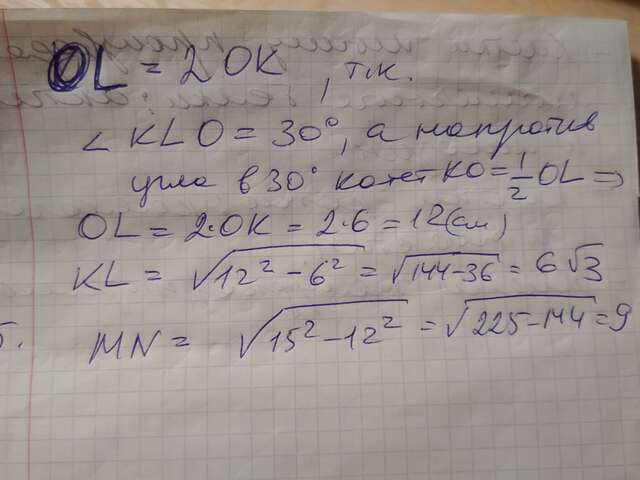 OL = 2OK, т.к.
∠KLO = 30°, а напротив
угла в 30° катет KO = 1/2 OL ⇒
OL = 2·OK = 2·6 = 12(см)
KL = √12² - 6² = √144-36 = 6√3
5. MN = √15² - 12² = √225-144 = 9